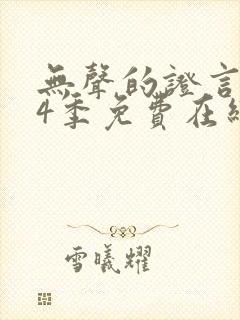 無聲的證言
4季免費在線
雪曦耀